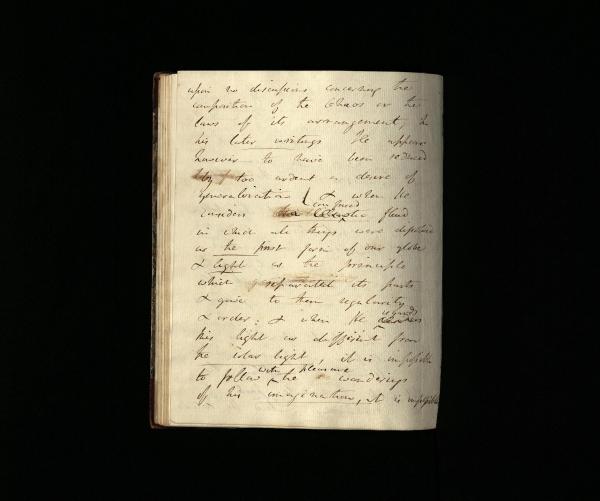 upon no discussions concerning the
composition of the Chaos or the
laws of its arrangement, In
his later writings He appears
however to have been seduced
by too ardent a desire of
generalization & when he
considers confused fluid
in which all things were
as the first form of our globe
& light as the principle
which separated its parts
& gave to them regularity
& order; & when He regards
this light as different from
the solar light, it is impossible
to follow with pleasure the wanderings
of his imagination, it is impossible